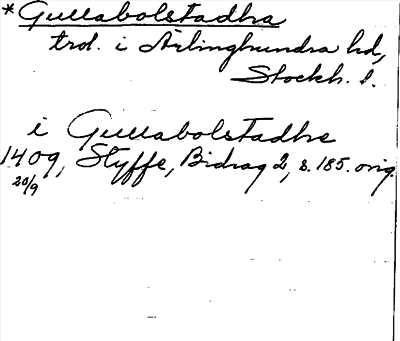 *Gullabolstadha
trol. i Ärlinghundra hd,
Stockh. l.
i Gullabolstadhe
1409, Styffe, Bidrag 2, s. 185. orig.
20/9